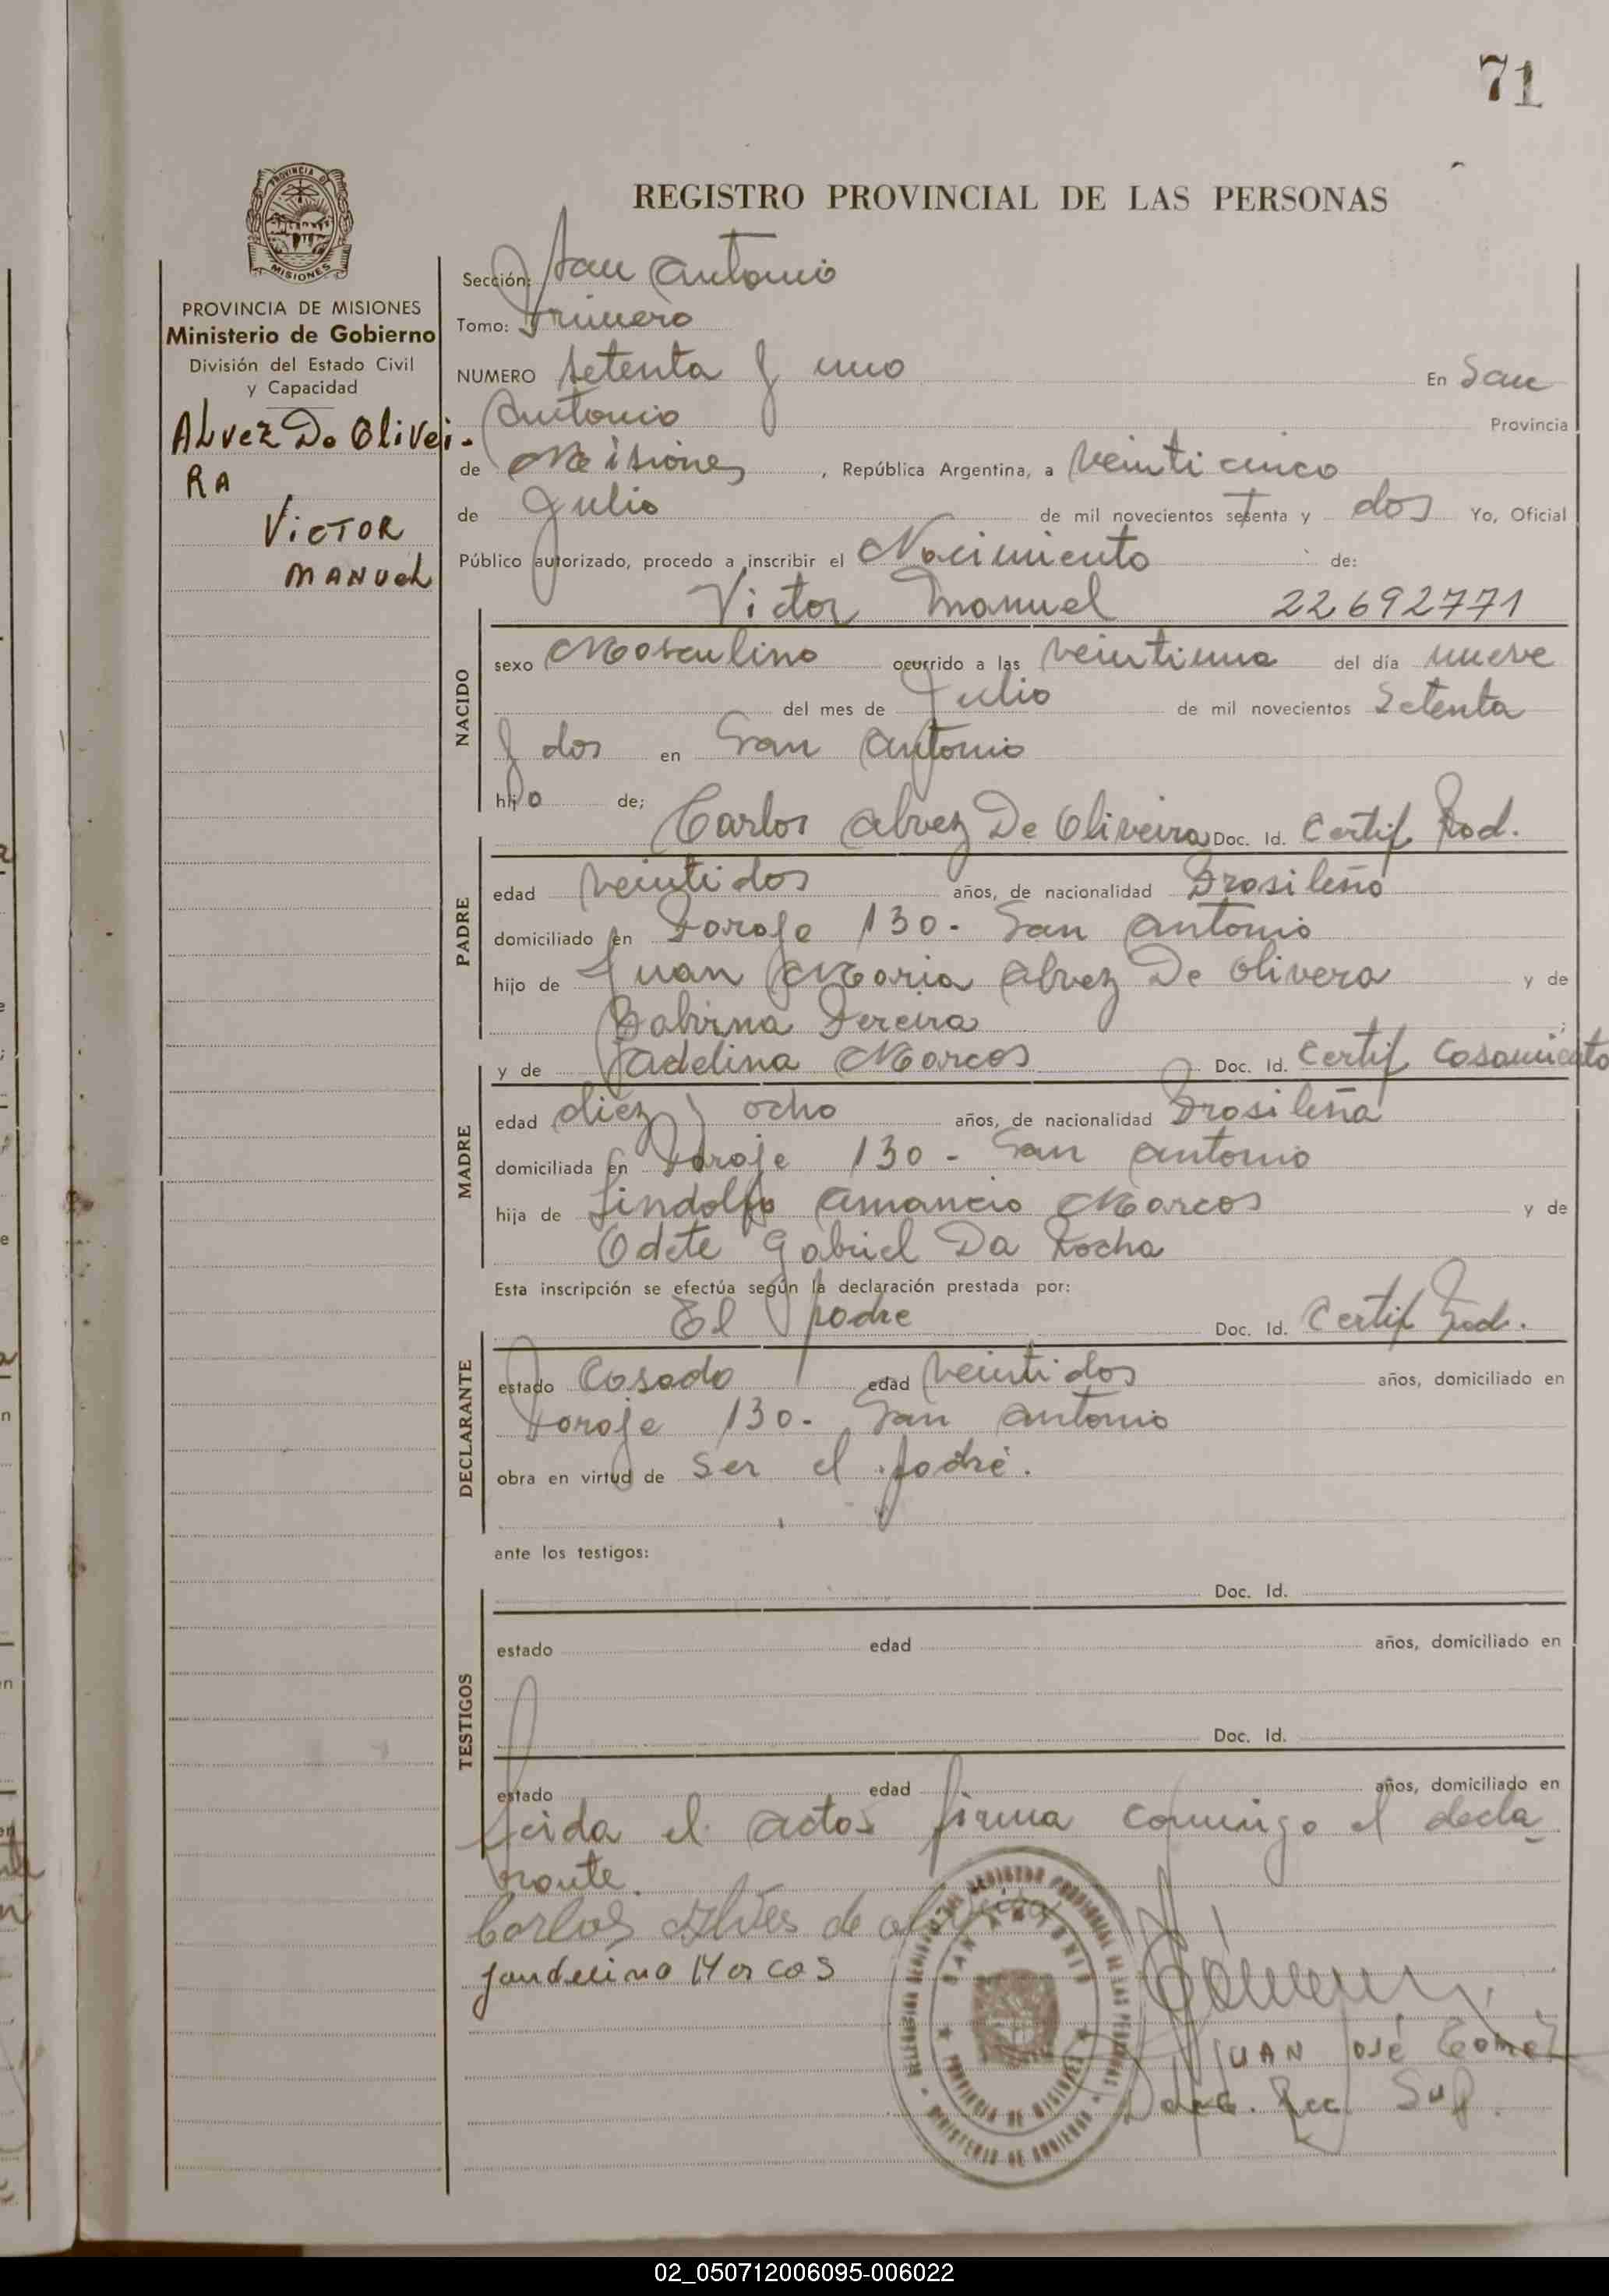 71
REGISTRO PROVINCIAL DE LAS PERSONAS
PROVINCIA DE MISIONES
Ministerio de Gobierno
División del Estado Civil
y Capacidad
ALvez De Olivei-
RA
VICTOR
MANUEL
Sección: San Antonio
Tomo: Primero
NUMERO Setenta y uno En San
Antonio Provincia
de Misiones, República Argentina, a veinticinco
de Julio de mil novecientos setenta y dos Yo, Oficial
Público autorizado, procedo a inscribir el Nacimiento de:
Victor Manuel 22692771
NACIDO
sexo Masculino ocurrido a las veintiuna del día nueve
del mes de Julio de mil novecientos Setenta
y dos en San Antonio
hijo de;
Carlos Alvez De Oliveira Doc. Id. Certif Rod.
PADRE
edad veintidos años, de nacionalidad Brasileño
domiciliado en Paraje 130. San Antonio
hijo de Juan Maria Alvez De Olivera y de
Pereira
y de Adelina Marcos Doc. Id. Certif Casamiento
MADRE
edad diez y ocho años, de nacionalidad Brasileña
domiciliada en Paraje 130 - San Antonio
hija de Lindolfo Amancio Marcos y de
Odete Gabriel Da Rocha
Esta inscripción se efectúa según la declaración prestada por:
El padre Doc. Id. Certif Rod.
DECLARANTE
estado Casado edad veintidos años, domiciliado en
Paraje 130. San Antonio
obra en virtud de ser el padre.
ante los testigos:
Doc. Id.
TESTIGOS
estado edad años, domiciliado en
Doc. Id.
estado edad años, domiciliado en
Leida el acta firma conmigo el decla
rante.
Carlos Alves de oliveira
Marcos
JUAN JOSÉ Gomez
02_050712006095-006022